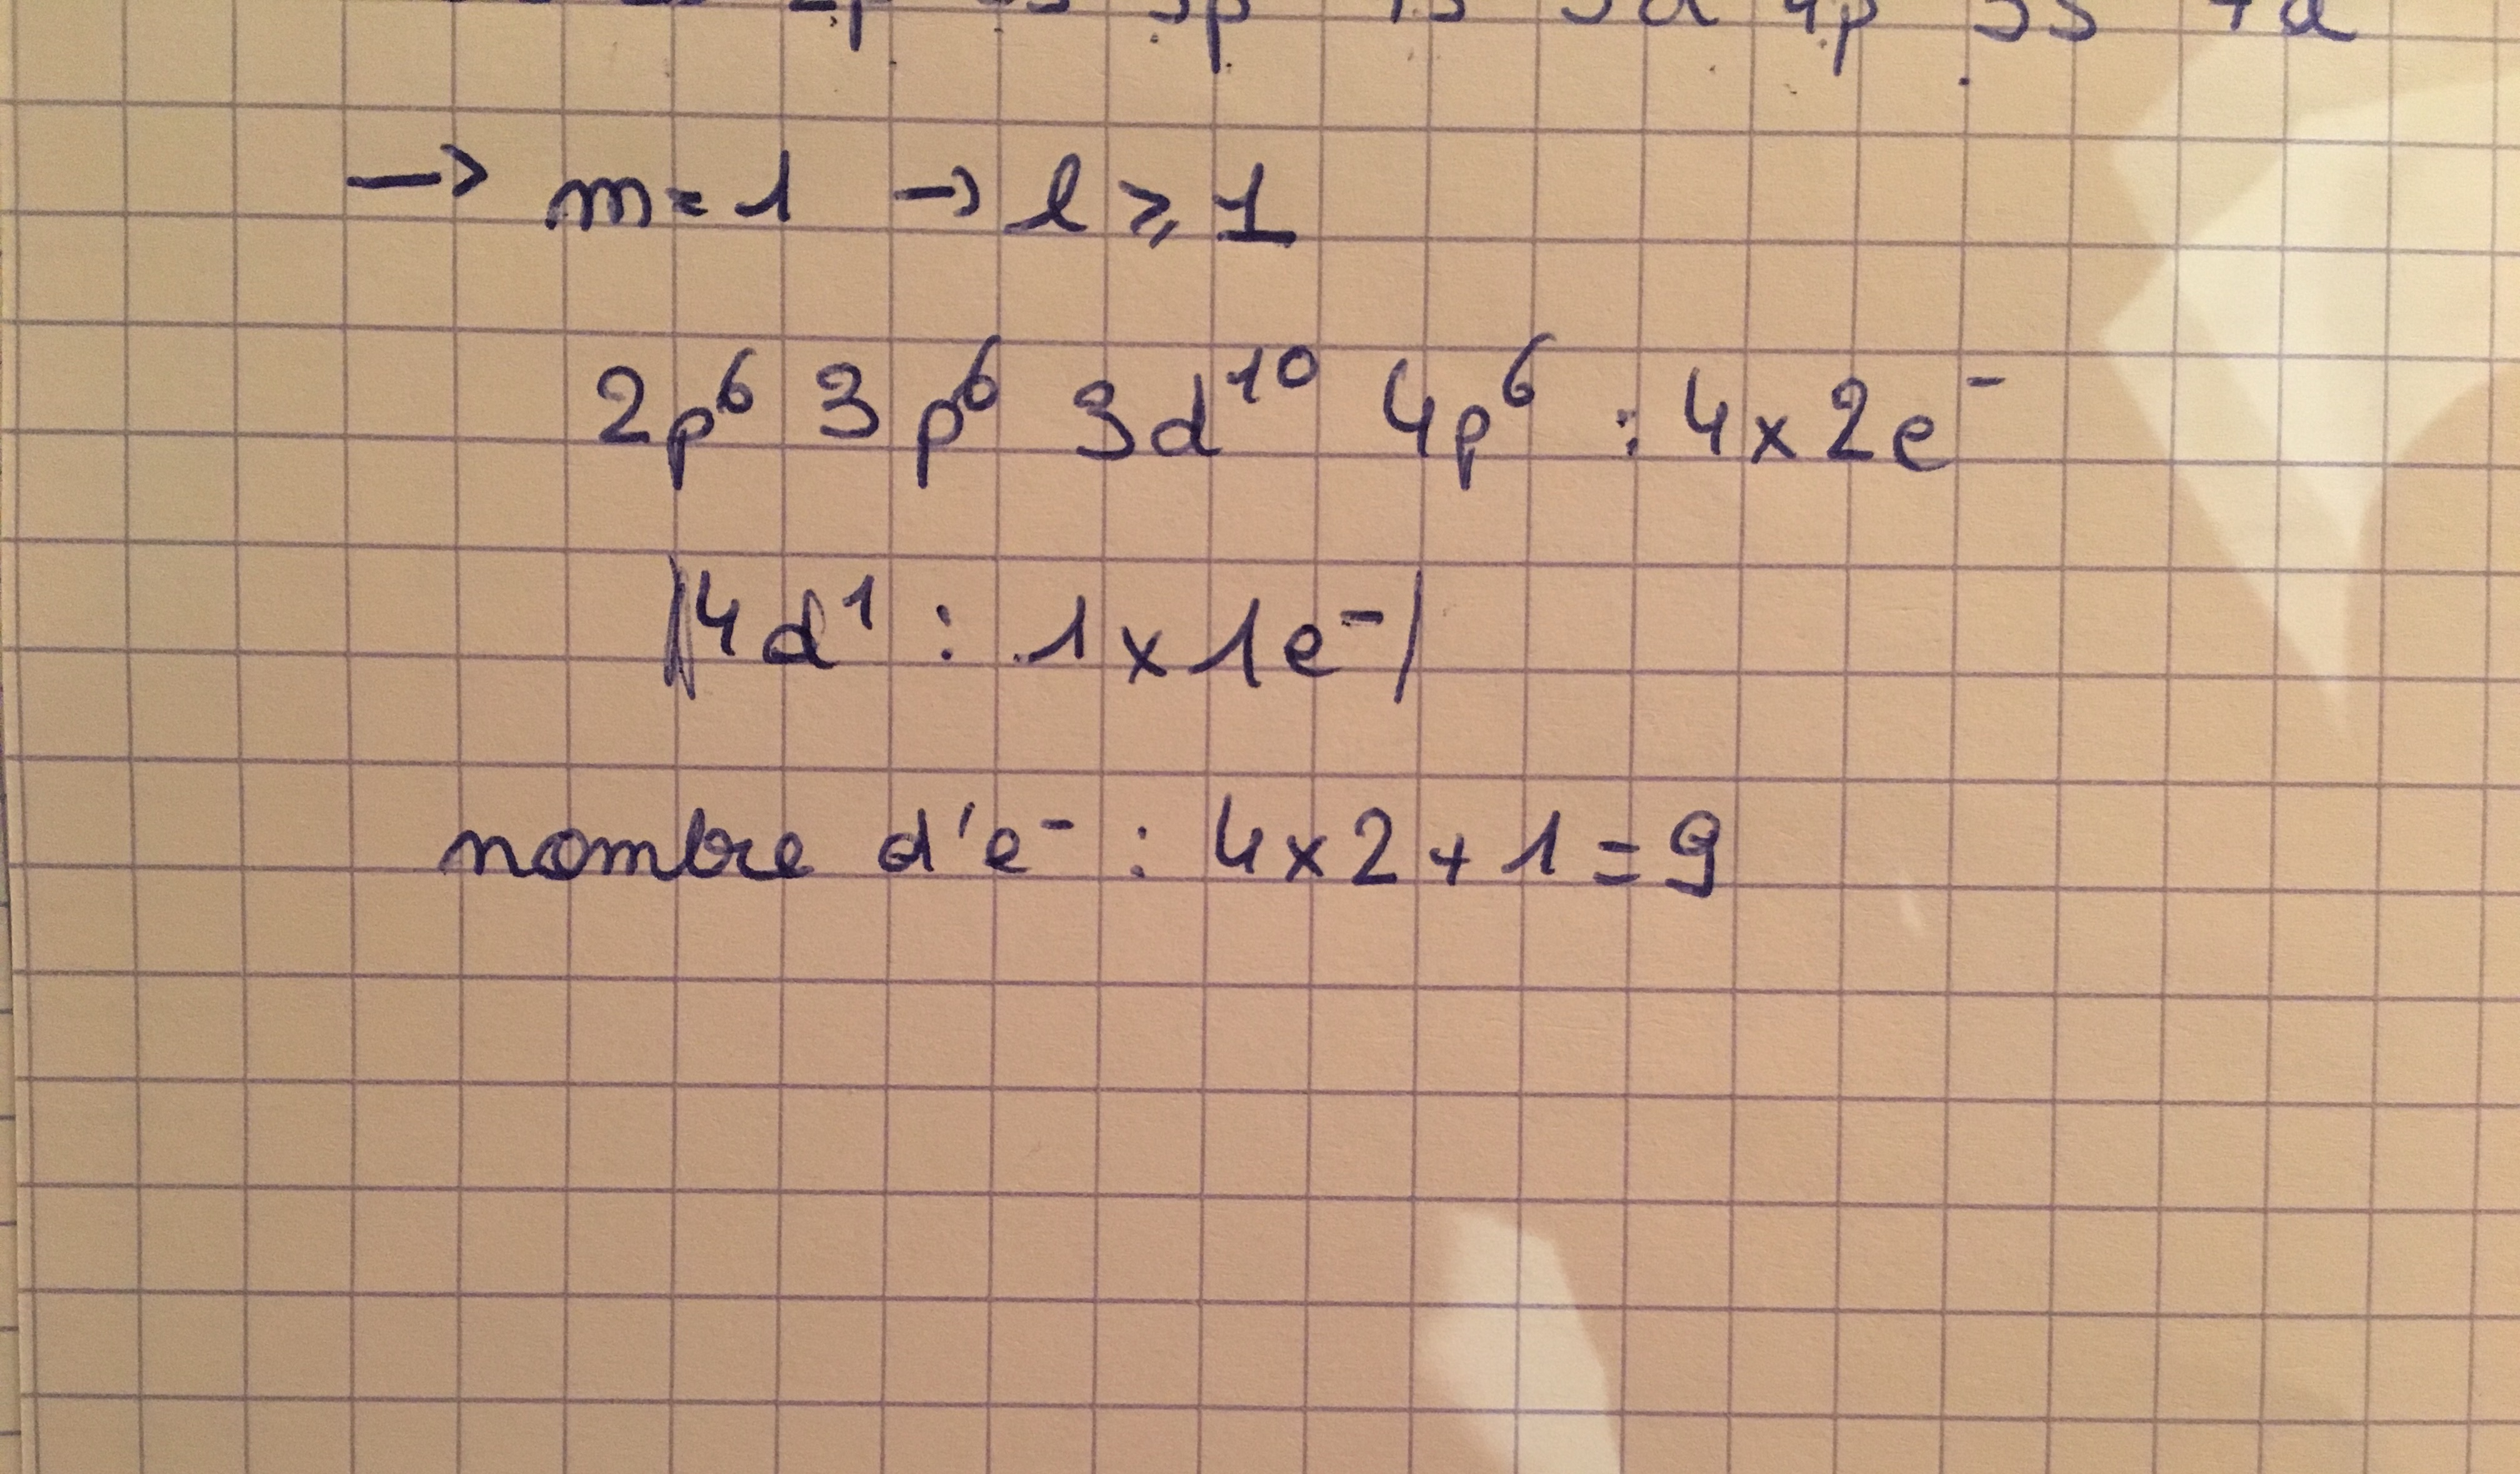 2p 3p 4s 3d 4p 5s 4d
→ m = 1 → l ⩾ 1
2p⁶ 3p⁶ 3d¹⁰ 4p⁶ : 4x2e⁻
|4d¹ : 1x1e⁻|
nombre d'e⁻ : 4x2+1=9